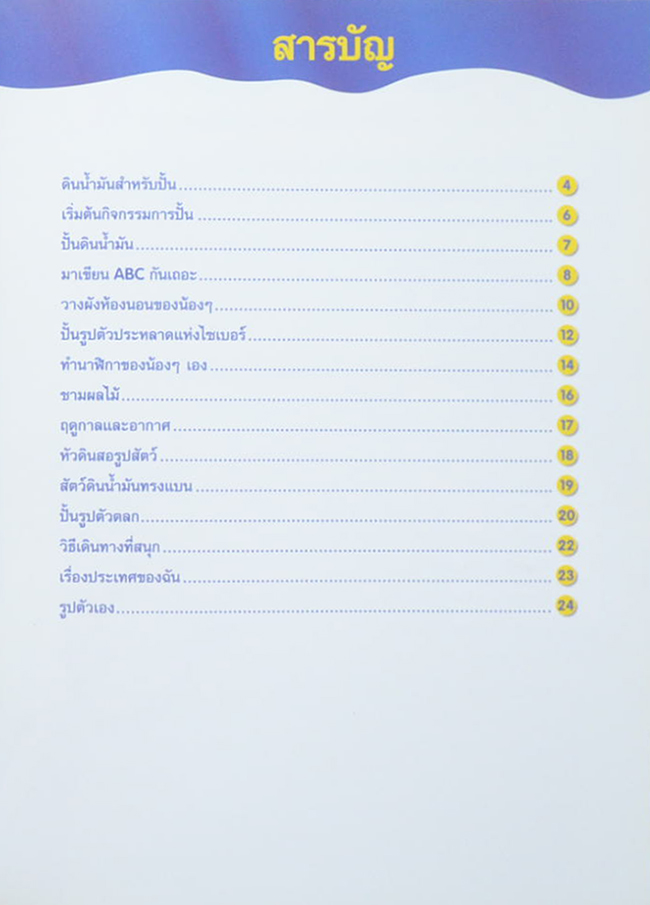 สารบัญ
ดินน้ำมันสำหรับปั้น 4
เริ่มต้นกิจกรรมการปั้น 6
ปั้นดินน้ำมัน 7
มาเขียน ABC กันเถอะ 8
วางผังห้องนอนของน้องๆ 10
ปั้นรูปตัวประหลาดแห่งไซเบอร์ 12
ทำนาฬิกาของน้องๆ เอง 14
ชามผลไม้ 16
ฤดูกาลและอากาศ 17
หัวดินสอรูปสัตว์ 18
สัตว์ดินน้ำมันทรงแบน 19
ปั้นรูปตัวตลก 20
วิธีเดินทางที่สนุก 22
เรื่องประเทศของฉัน 23
รูปตัวเอง 24